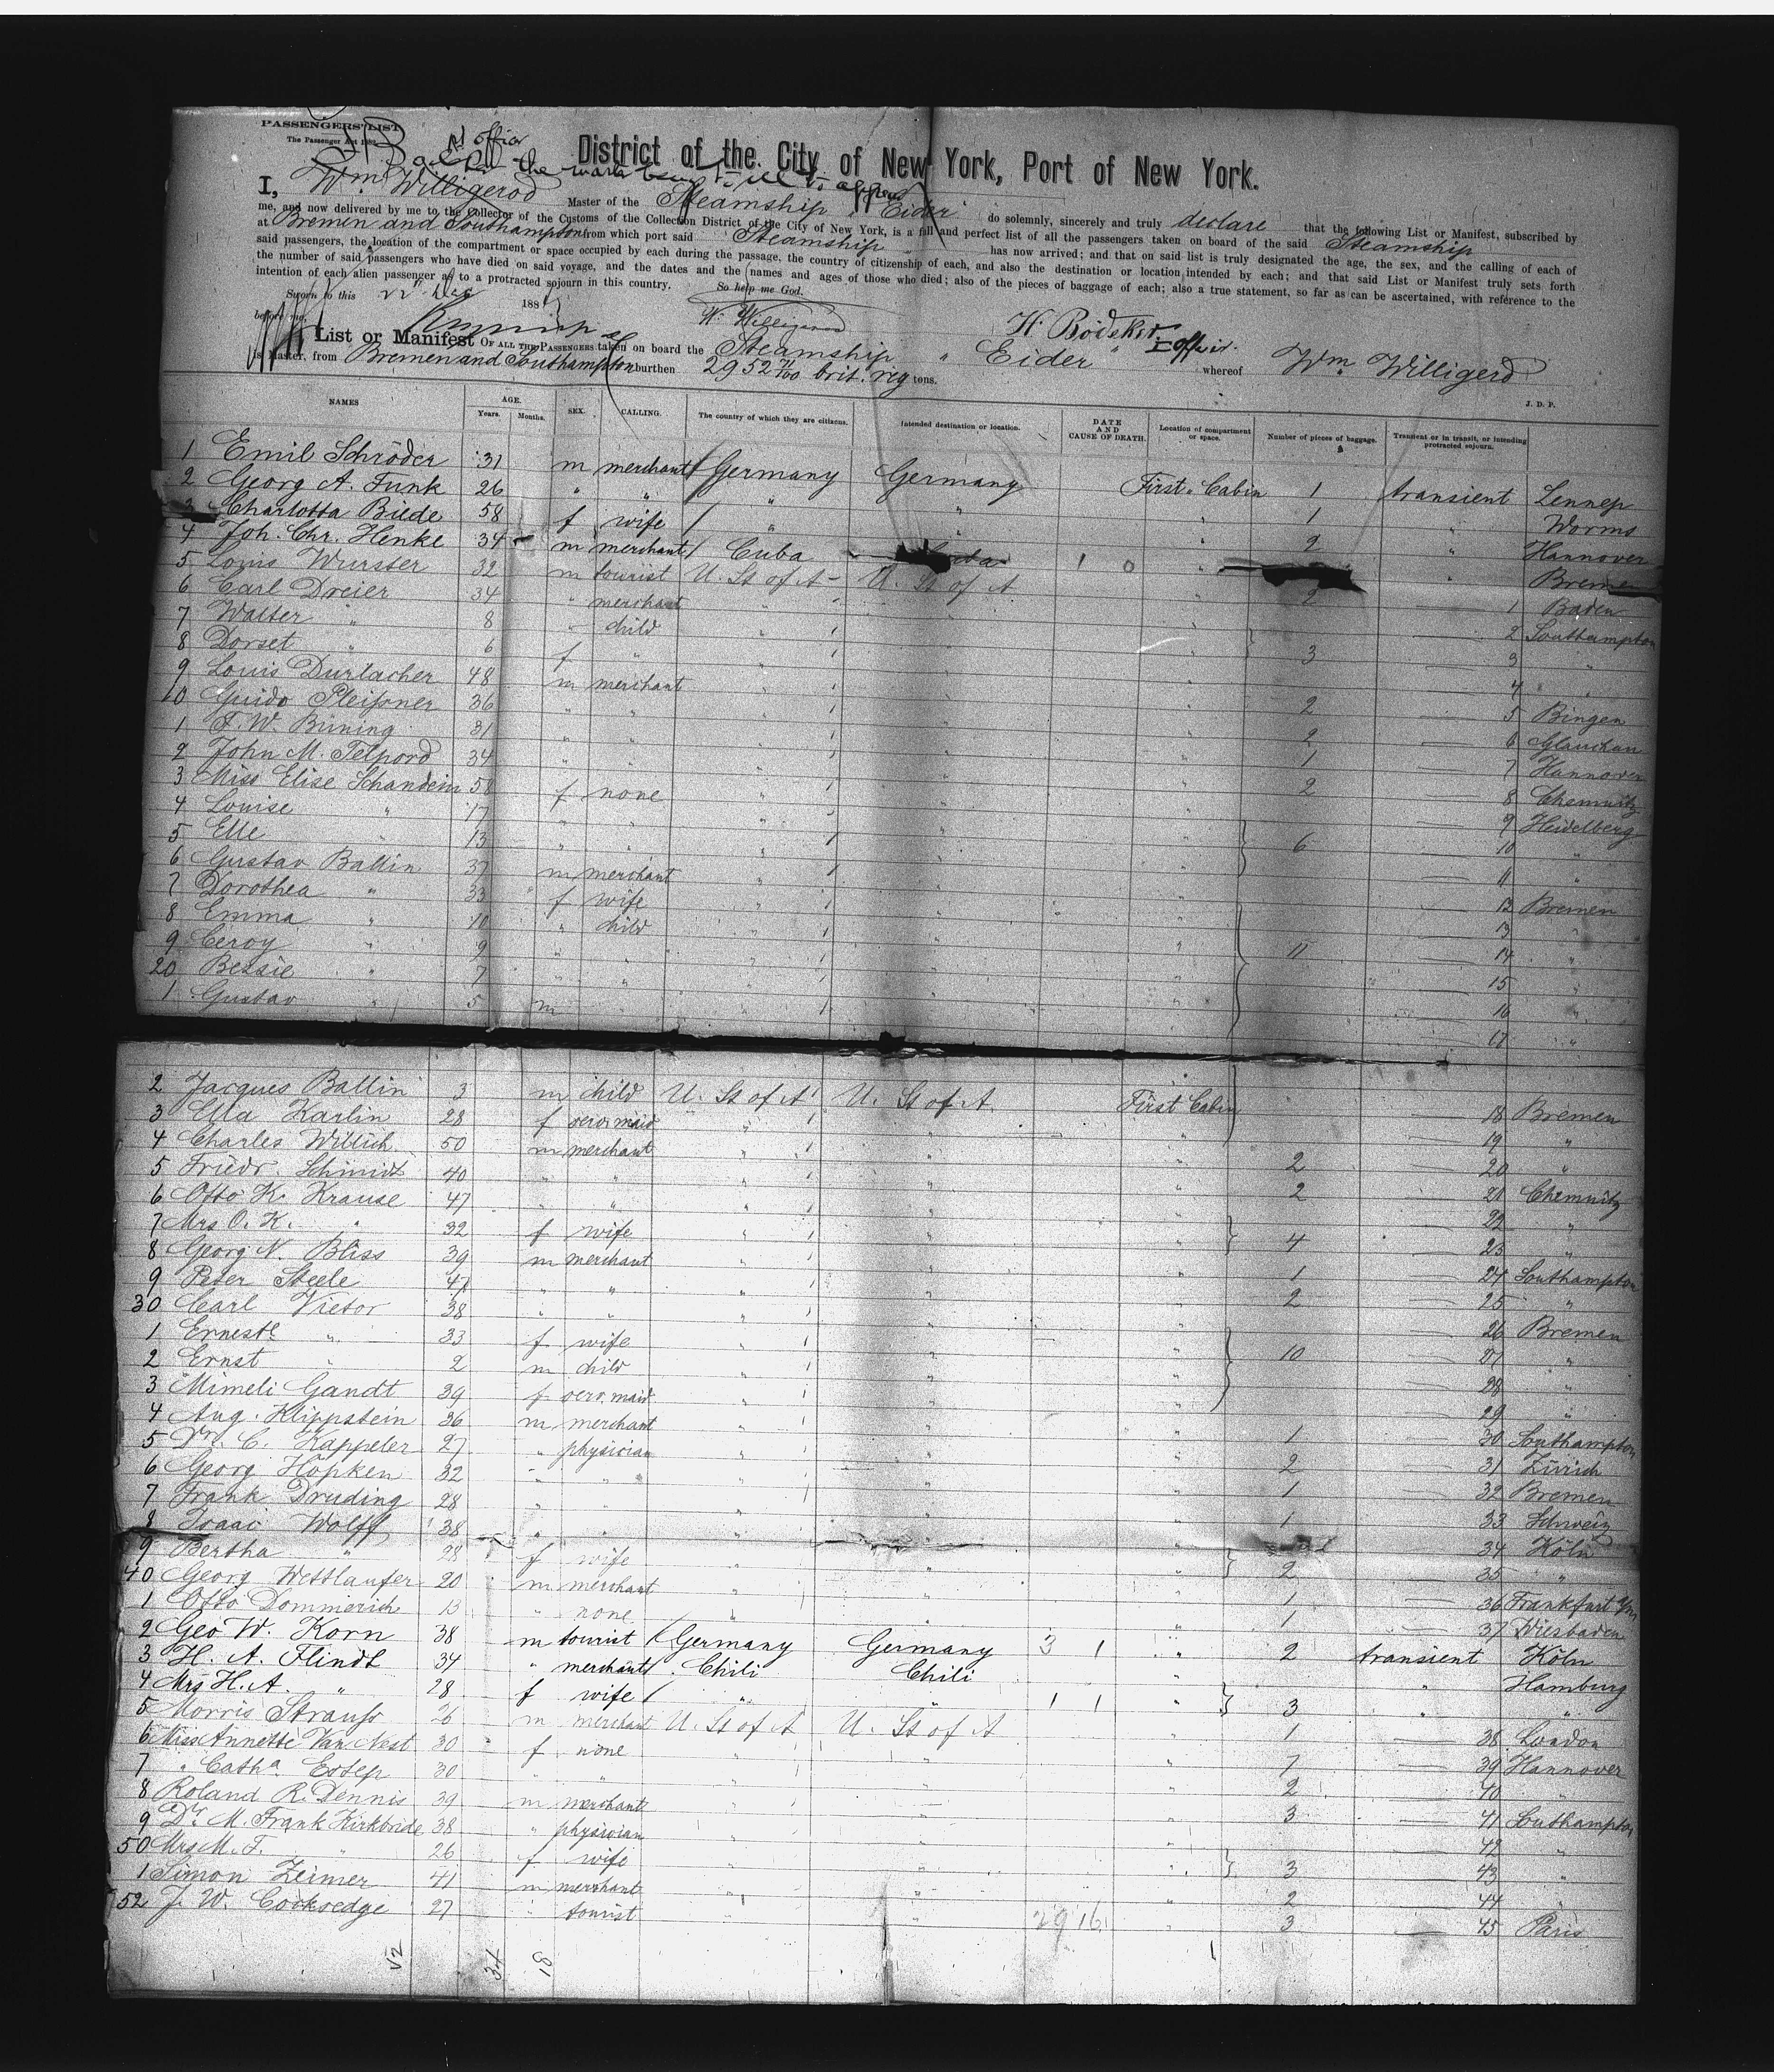 PASSENGERS' LIST
The Passenger Act 1882.
District of the City of New York, Port of New York.
I, Wm. Willigerod Master of the Steamship "Eider" do solemnly, sincerely and truly declare that the following List or Manifest, subscribed by
me, and now delivered by me to the Collector of the Customs of the Collection District of the City of New York, is a full and perfect list of all the passengers taken on board of the said Steamship
at Bremen and Southampton from which port said Steamship has now arrived; and that on said list is truly designated the age, the sex, and the calling of each of
said passengers, the location of the compartment or space occupied by each during the passage, the country of citizenship of each, and also the destination or location intended by each; and that said List or Manifest truly sets forth
the number of said passengers who have died on said voyage, and the dates and the names and ages of those who died; also of the pieces of baggage of each; also a true statement, so far as can be ascertained, with reference to the
intention of each alien passenger as to a protracted sojourn in this country. So help me God.
Sworn to this 22 Dec 188
before me, W. Willigerod H. Bödeker I Offic.
List or Manifest OF ALL THE PASSENGERS taken on board the Steamship "Eider" whereof Wm Willigerod
is Master, from Bremen and Southampton burthen 2952 brit. reg tons.
J. D. P.
NAMES AGE. Years. Months. SEX. CALLING. The country of which they are citizens. Intended destination or location. DATE AND CAUSE OF DEATH. Location of compartment or space. Number of pieces of baggage. Transient or in transit, or intending protracted sojourn.
1 Emil Schröder 31 m merchant Germany Germany First Cabin 1 transient Lennep
2 Georg A. Funk 26 " " " " " 1 " Worms
3 Charlotta Biede 58 f wife " " " 2 " Hannover
4 Joh. Chr. Henke 34 m merchant Cuba " " Bremen
5 Louis Wurster 32 m tourist U. St of A U. St of A. " 2 1 Baden
6 Carl Dreier 34 " merchant " " " 2 Southampton
7 Walter " 8 " child " " " 3 3 "
8 Dorset " 6 f " " " " 4 "
9 Louis Durlacher 48 m merchant " " " 2 5 Bingen
10 Guido Pleißner 36 " " " " " 2 6 Glauchau
1 F. W. Büning 31 " " " " " 1 7 Hannover
2 John M. Telpord 34 " " " " " 2 8 Chemnitz
3 Miss Elise Schandein 58 f none " " " 9 Heidelberg
4 Louise " 17 " " " " " 6 10 "
5 Elle " 13 " " " " " 11 "
6 Gustav Ballin 37 m merchant " " " 12 Bremen
7 Dorothea " 33 f wife " " " 13 "
8 Emma " 10 " child " " " 11 14 "
9 Ceroy " 9 " " " " " 15 "
20 Bessie " 7 " " " " " 16 "
1 Gustav " 5 m " " " " 17 "
2 Jacques Ballin 3 m child U. St of A U. St of A. First Cabin 18 Bremen
3 Ella Karlin 28 f serv. maid " " " 19 "
4 Charles Willich 50 m merchant " " " 2 20 "
5 Friedr. Schmidt 40 " " " " " 2 21 Chemnitz
6 Otto K. Krause 47 " " " " " 22 "
7 Mrs O. K. " 32 f wife " " " 4 23 "
8 Georg N. Bliss 39 m merchant " " " 1 24 Southampton
9 Peter Steele 47 " " " " " 2 25 "
30 Carl Vietor 38 " " " " " 26 Bremen
1 Ernestе " 33 f wife " " " 10 27 "
2 Ernst " 2 m child " " " 28 "
3 Mimeli Gandt 39 f serv. maid " " " 29 "
4 Aug. Klippstein 36 m merchant " " " 1 30 Southampton
5 Dr. C. Kappeler 27 " physician " " " 2 31 Zürich
6 Georg Höpken 32 " " " " " 1 32 Bremen
7 Frank Druding 28 " " " " " 1 33 Schweiz
8 Isaac Wolff 38 " " " " " 34 Köln
9 Bertha " 28 f wife " " " 2 35 "
40 Georg Wettlaufer 20 m merchant " " " 1 36 Frankfurt a/m
1 Otto Dommerich 13 " none " " " 1 37 Wiesbaden
2 Geo W. Korn 38 m tourist Germany Germany 3 1 " 2 transient Köln
3 H. A. Flindt 34 " merchant Chili Chili " " Hamburg
4 Mrs H. A. " 28 f wife " " 1 1 " 3 " "
5 Morris Strauß 26 m merchant U. St of A U. St of A 1 38 London
6 Miss Annette Van Nest 30 f none " " " 7 39 Hannover
7 " Catha. Estep 30 " " " " " 2 40 "
8 Roland R. Dennis 39 m merchant " " " 3 41 Southampton
9 Dr. M. Frank Kirkbride 38 " physician " " " 42 "
50 Mrs M. F. " 26 f wife " " " 3 43 "
1 Simon Zeimer 41 m merchant " " " 2 44 "
52 J. W. Cooksedge 27 " tourist " " 29 16 " 3 45 Paris
52 34 18